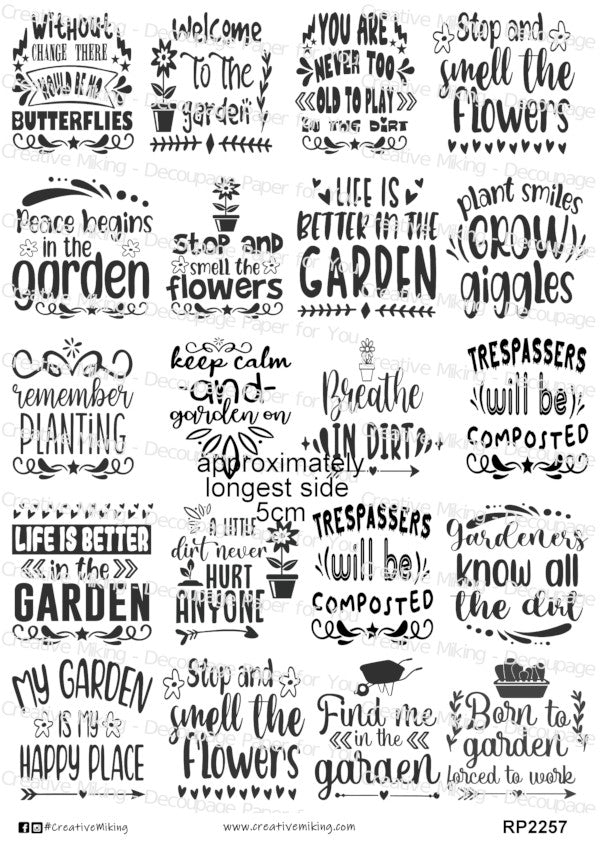 Without
CHANGE THERE
WOULD BE NO
BUTTERFLIES
Welcome
To the
garden
YOU ARE
NEVER TOO
OLD TO PLAY
IN THE DIRT
Stop and
smell the
Flowers
Peace begins
in the
garden
Stop and
smell the
flowers
LIFE IS
BETTER IN THE
GARDEN
plant smiles
GROW
giggles
remember
PLANTING
keep calm
-and-
garden on
Breathe
IN DIRT
TRESPASSERS
(will be)
COMPOSTED
approximately
longest side
5cm
LIFE IS BETTER
in the
GARDEN
A LITTLE
dirt never
HURT
ANYONE
TRESPASSERS
(will be)
COMPOSTED
Gardeners
know all
the dirt
MY GARDEN
IS MY
HAPPY PLACE
Stop and
smell the
Flowers
Find me
in the
garden
Born to
garden
forced to work
Creative Miking - Decoupage Paper for You
#CreativeMiking
www.creativemiking.com
RP2257